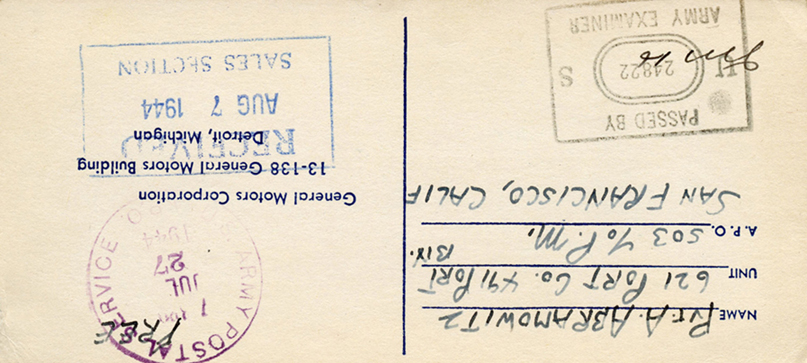 NAME Pvt. A. ABRAMOWITZ
UNIT 621 PORT CO. 491 PORT
BN.
A.P.O. 503 % P.M.
SAN FRANCISCO, CALIF
PASSED BY
U 24822 S
ARMY EXAMINER
FREE
ARMY POSTAL SERVICE
JUL
27
1944
General Motors Corporation
13-138 General Motors Building
Detroit, Michigan
RECEIVED
AUG 7 1944
SALES SECTION